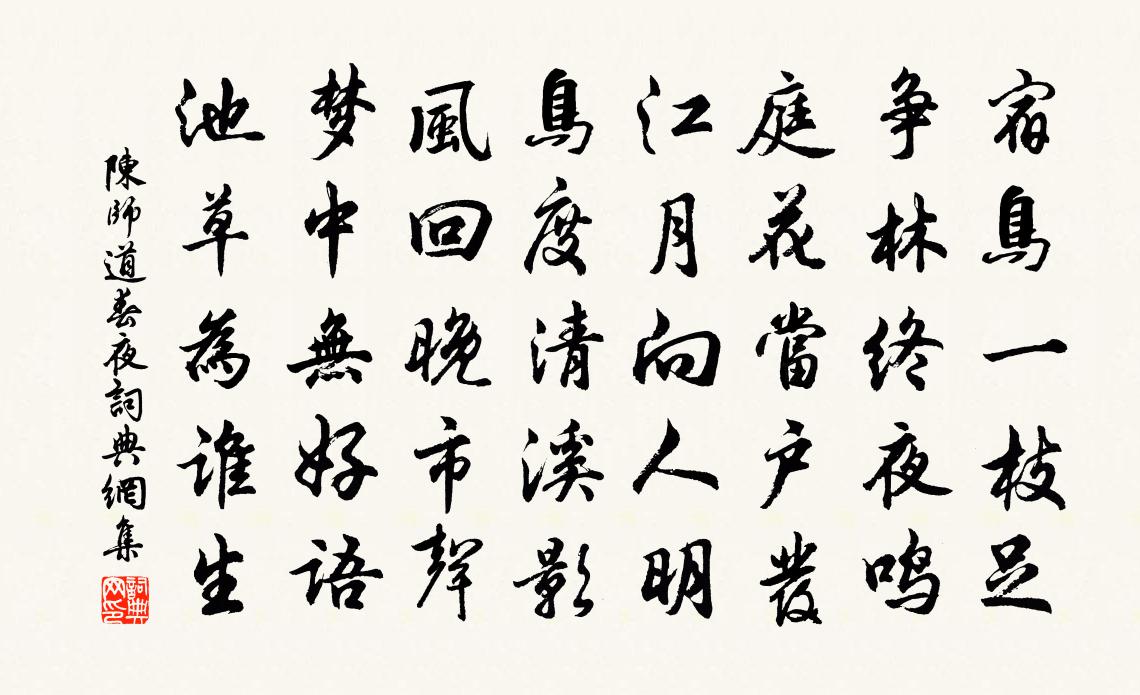 宿鳥一枝足
争林終夜鸣
庭花當户發
江月向人明
鳥度清溪影
風回晚市聲
梦中無好語
池草為誰生
陳師道春夜詞典網集
詞典網印